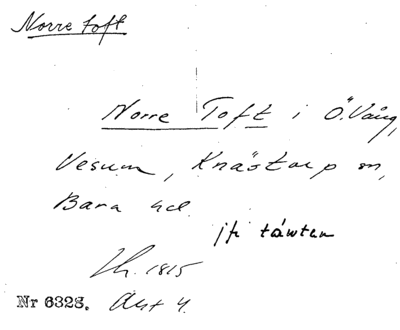 Norre toft
Norre Toft i Ö. Vång,
Vesum, Knästorp sn,
Bara hd.
jfr tåwten
Lh. 1815
Nr 6328. Akt 4.